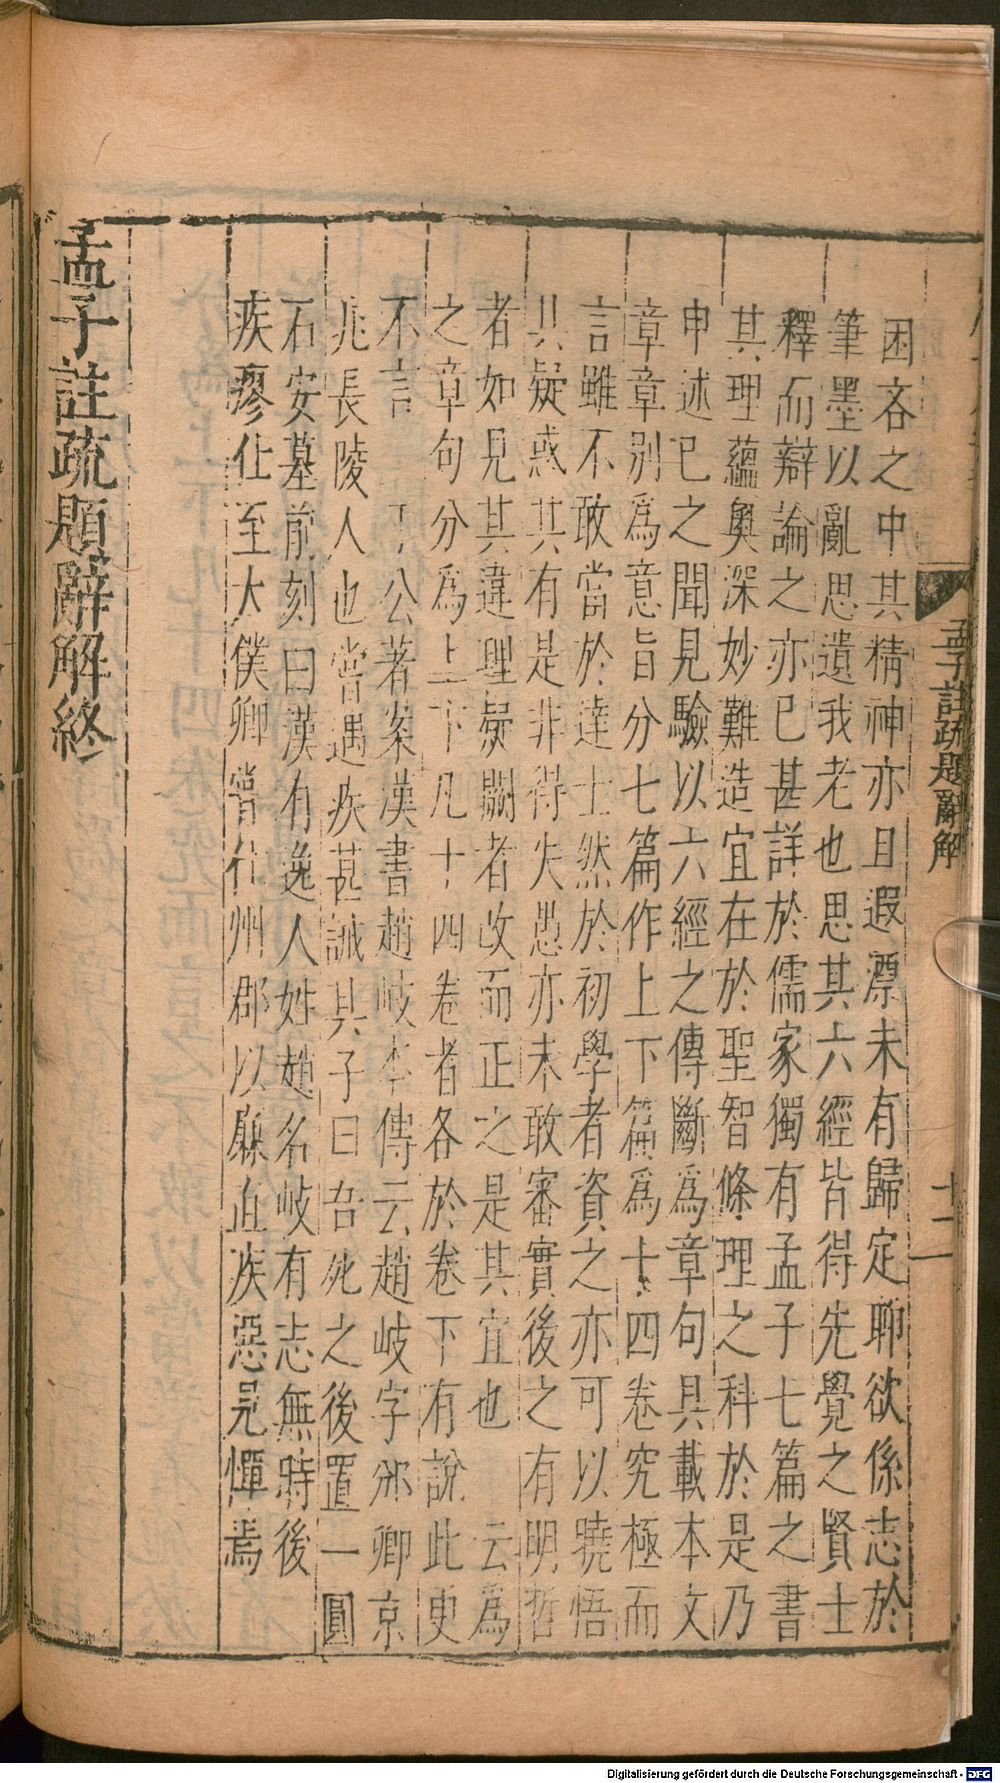 孟子註疏題辭解
十二
困吝之中其精神亦且遐漂未有歸定聊欲係志於
筆墨以亂思遺我老也思其六經皆得先覺之賢士
釋而辯論之亦已甚詳於儒家獨有孟子七篇之書
其理蘊奧深妙難造宜在於聖智條理之科於是乃
申述已之聞見驗以六經之傳斷爲章句具載本文
章章別爲意旨分七篇作上下篇爲十四卷究極而
言雖不敢當於達士然於初學者資之亦可以曉悟
其疑惑其有是非得失愚亦未敢審實後之有明哲
者如見其違理疑闕者改而正之是其宜也 云爲
之章句分爲上下凡十四卷者各於卷下有說此更
不言 公著案漢書趙岐本傳云趙岐字邠卿京
兆長陵人也嘗遇疾甚誡其子曰吾死之後置一圓
石安墓前刻曰漢有逸人姓趙名岐有志無時後
疾瘳仕至大僕卿嘗仕州郡以廉直疾惡見憚焉
孟子註疏題辭解終
Digitalisierung gefördert durch die Deutsche Forschungsgemeinschaft - DFG